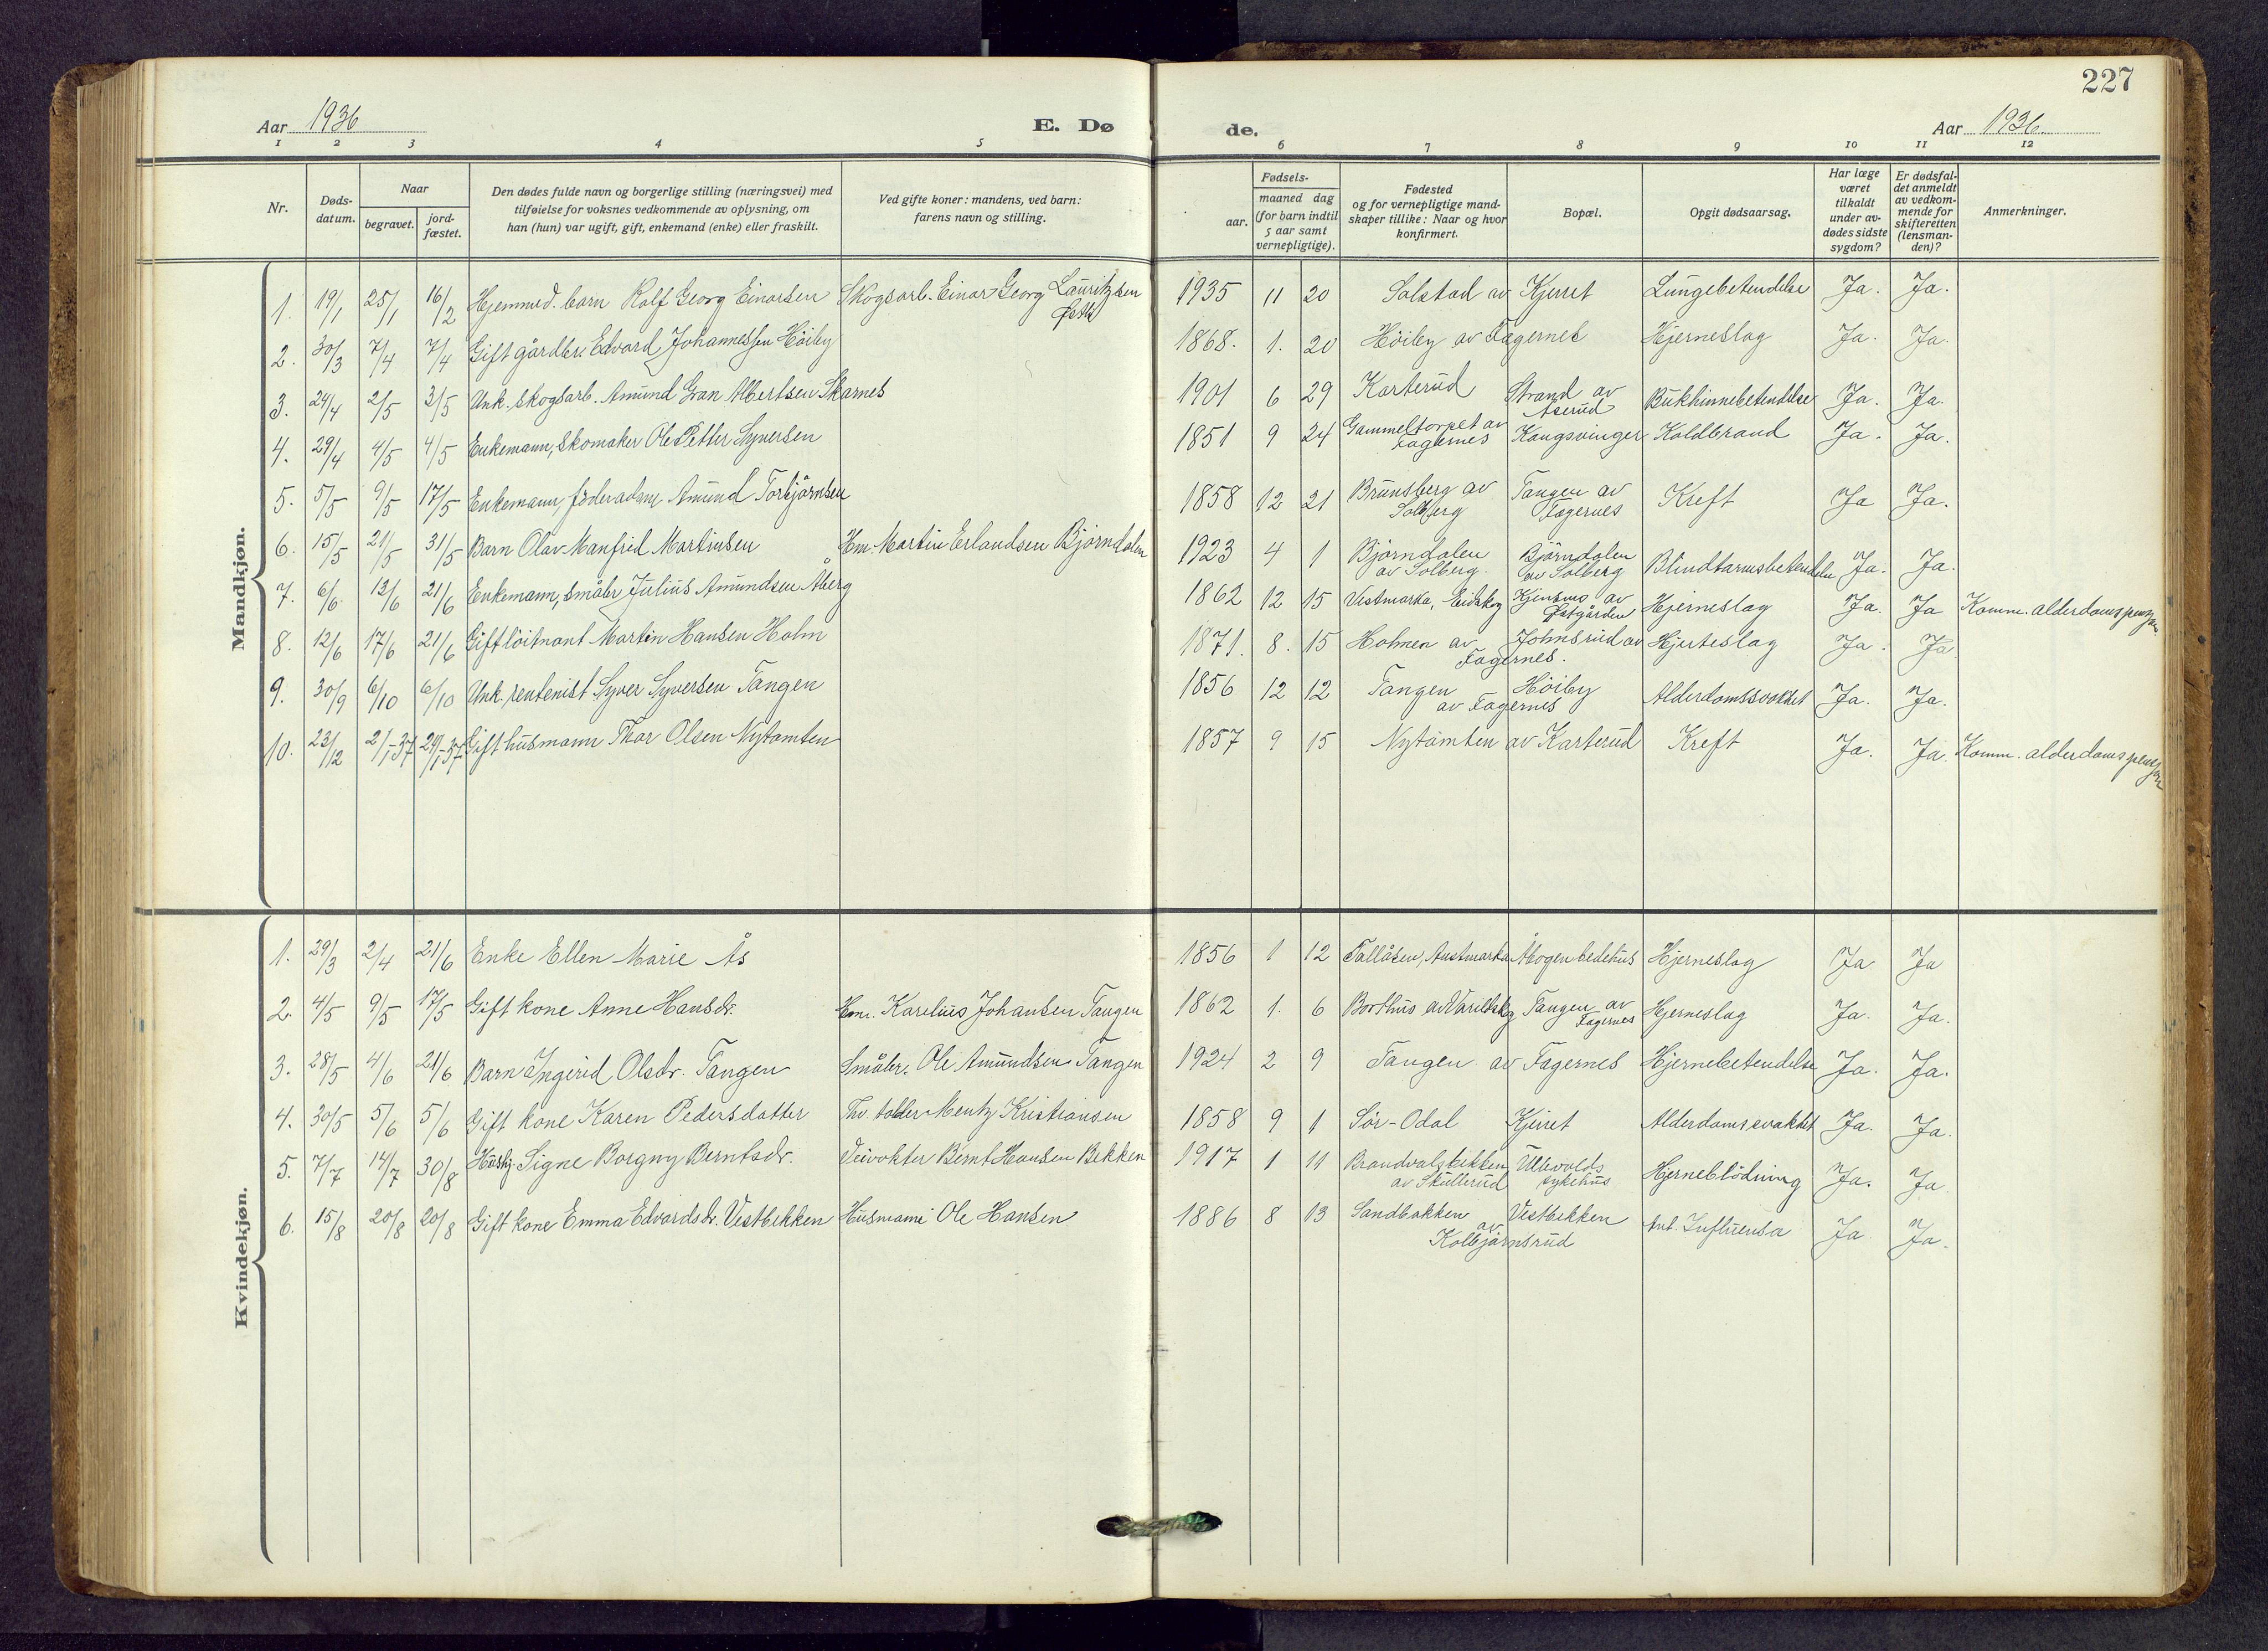 227
Aar 1936 E. Dø de. Aar 1936
1 2 3 4 5 6 7 8 9 10 11 12
Nr. Døds-datum. Naar begravet. jord-fæstet. Den dødes fulde navn og borgerlige stilling (næringsvei) med tilføielse for voksnes vedkommende av oplysning, om han (hun) var ugift, gift, enkemand (enke) eller fraskilt. Ved gifte koner: mandens, ved barn: farens navn og stilling. Fødsels- aar. maaned dag (for barn indtil 5 aar samt vernepligtige). Fødested og for vernepligtige mand-skaper tillike: Naar og hvor konfirmert. Bopæl. Opgit dødsaarsag. Har læge været tilkaldt under av-dødes sidste sygdom? Er dødsfal-det anmeldt av vedkom-mende for skifteretten (lensman-den)? Anmerkninger.
Mandkjøn.
1. 19/1 25/1 16/2 Hjemmed. barn Rolf Georg Einarsen Skogsarb. Einar Georg Lauritzsen 1935 11 20 Solstad av Kjerret Lungebetendelse Ja. Ja.
2. 30/3 7/4 7/4 Gift gårdbr. Edvard Johannessen Höiby 1868. 1. 20 Höiby av Fagernes Hjerneslag Ja. Ja.
3. 24/4 2/5 3/5 Unk. skogsarb. Amund Gran Albertsen Skarnes 1901 6 29 Karterud Strand av Åserud Bukhinnebetendelse Ja. Ja.
4. 29/4 4/5 4/5 Enkemann, skomaker Ole Petter Syversen 1851 9 24 Gammeltorpet av Fagernes Kongsvinger Koldbrand Ja. Ja.
5. 5/5 9/5 17/5 Enkemann, föderådsm. Amund Torbjörnsen 1858 12 21 Brunsberg av Solberg Tangen av Fagernes Kreft Ja Ja.
6. 15/5 21/5 31/5 Barn Olav Manfrid Martinsen Hm. Martin Erlandsen Björndalen 1923 4 1 Björndalen av Solberg. Björndalen av Solberg Blindtarmsbetendelse Ja. Ja.
7. 6/6 13/6 21/6 Enkemann, småbr. Julius Amundsen Åberg 1862 12 15 Vestmarka, Eidskog Kjensmo av Östgården Hjerneslag Ja. Ja Komm. alderdomspensjon
8. 12/6 17/6 21/6 Gift löitnant Martin Hansen Holm 1871. 8. 15 Holmen av Fagernes. Johnsrud av Hjerteslag Ja. Ja
9. 30/9 6/10 6/10 Unk. rentenist Syver Syversen Tangen 1856 12 12 Tangen av Fagernes Höiby Alderdomssvakhet Ja. Ja.
10. 23/12 2/1-37 24/1-37 Gift husmann Thor Olsen Nytomten 1857 9 15 Nytomten av Karterud Kreft Ja. Ja. Komm. alderdomspensjon
Kvindekjøn.
1. 29/3 2/4 21/6 Enke Ellen Marie Ås 1856 1 12 Fallåsen, Austmarka Åbogen bedehus Hjerneslag Ja Ja
2. 4/5 9/5 17/5 Gift kone Anne Hansdr. Hm. Karelius Johansen Tangen 1862 1. 6 Borthus av Varildskog Tangen av Fagernes Hjerneslag Ja. Ja.
3. 28/5 4/6 21/6 Barn Ingerid Olsdr. Tangen Småbr. Ole Amundsen Tangen 1924 2 9 Tangen av Fagernes Hjernebetendelse Ja. Ja.
4. 30/5 5/6 5/6 Gift kone Karen Pedersdatter Fhv. tolder Mentz Kristiansen 1858 9 1 Sör-Odal Kjerret Alderdomssvakhet Ja. Ja.
5. 7/7 14/7 30/8 Hushj. Signe Borgny Berntsdr. Veivokter Bernt Hansen Bekken 1917 1 11 Brandvalsbekken av Skullerud Ullevolds sykehus Hjerneblödning Ja. Ja
6. 15/8 20/8 20/8 Gift kone Emma Edvardsdr. Vestbekken Husmann Ole Hansen 1886 8 13 Sandbakken av Kolbjörnsrud Vestbekken Influensa Ja Ja.